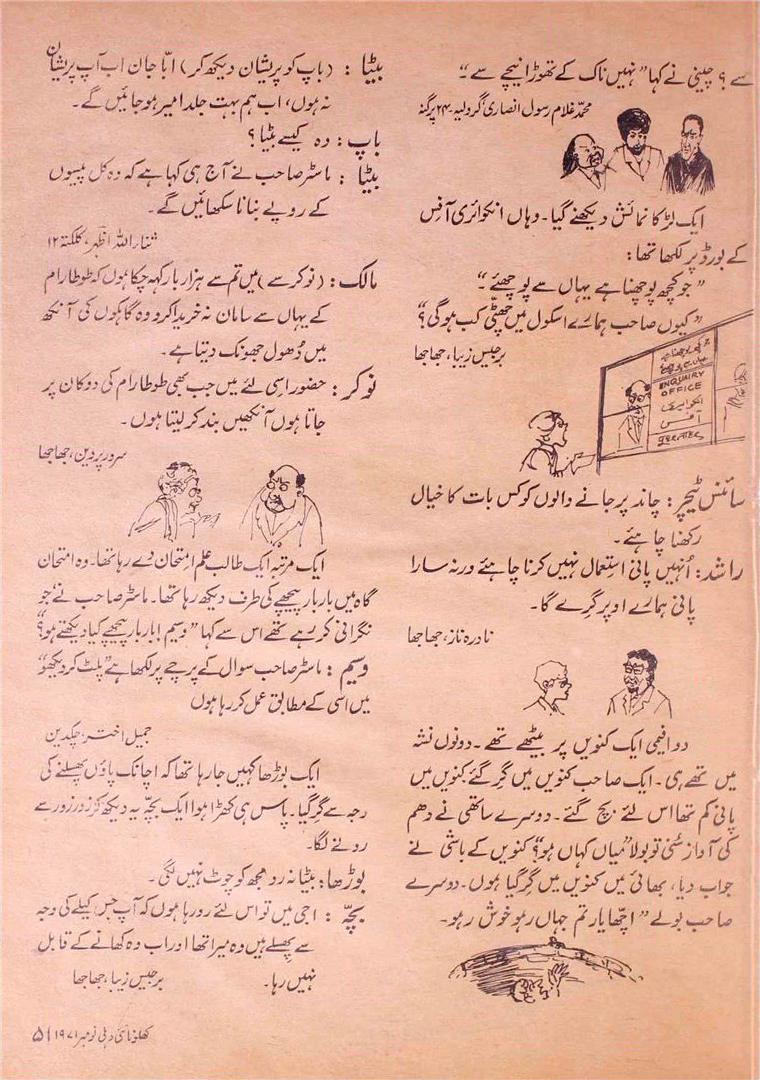 سے ؟ چینی نے کہا "نہیں ناک کے تھوڑا نیچے سے"۔
محمد غلام رسول انصاری گرولیہ۔ ۲۴ پرگنہ
ایک لڑکا نمائش دیکھنے گیا۔ وہاں انکوائری آفس
کے بورڈ پر لکھا تھا:
"جو کچھ پوچھنا ہے یہاں سے پوچھئے"۔
"کیوں صاحب ہمارے اسکول میں چھٹی کب ہوگی؟"
برجیس زیبا، جھاجھا
جو کچھ پوچھنا ہے
یہاں سے پوچھئے
ENQUAIRY
OFFICE
انکوایری
آفس
سائنس ٹیچر: چاند پر جانے والوں کو کس بات کا خیال
رکھنا چاہئے۔
راشد: اُنہیں پانی استعمال نہیں کرنا چاہئے ورنہ سارا
پانی ہمارے اوپر گرے گا۔
نادرہ ناز، جھاجھا
دو افیمی ایک کنویں پر بیٹھے تھے۔ دونوں نشہ
میں تھے ہی۔ ایک صاحب کنویں میں گر گئے کنویں میں
پانی کم تھا اس لئے بچ گئے۔ دوسرے ساتھی نے دھم
کی آواز سُنی تو بولا "میاں کہاں ہو؟" کنویں کے باشی نے
جواب دیا، بھائی میں کنویں میں گر گیا ہوں۔ دوسرے
صاحب بولے "اچھا یار تم جہاں رہو خوش رہو۔
بیٹا: (باپ کو پریشان دیکھ کر) ابّا جان اب آپ پریشان
نہ ہوں، اب ہم بہت جلد امیر ہو جائیں گے۔
باپ: وہ کیسے بیٹا؟
بیٹا: ماسٹر صاحب نے آج ہی کہا ہے کہ وہ کل پیسوں
کے روپے بنانا سکھائیں گے۔
ثناء اللہ اظہر، کلکتہ ۱۲
مالک: (نوکر سے) میں تم سے ہزار بار کہہ چکا ہوں کہ طوطا رام
کے یہاں سے سامان نہ خریدا کرو وہ گاہکوں کی آنکھ
میں دُھول جھونک دیتا ہے۔
نوکر: حضور اسی لئے میں جب بھی طوطا رام کی دوکان پر
جاتا ہوں آنکھیں بند کر لیتا ہوں۔
سرور پروین، جھاجھا
ایک مرتبہ ایک طالب علم امتحان دے رہا تھا۔ وہ امتحان
گاہ میں بار بار پیچھے کی طرف دیکھ رہا تھا۔ ماسٹر صاحب نے جو
نگرانی کر رہے تھے اس سے کہا "وسیم! بار بار پیچھے کیا دیکھتے ہو؟"
وسیم: ماسٹر صاحب سوال کے پرچے پر لکھا ہے "پلٹ کر دیکھو"
میں اسی کے مطابق عمل کر رہا ہوں
جمیل اختر، چکدین
ایک بوڑھا کہیں جا رہا تھا کہ اچانک پاؤں پھسلنے کی
وجہ سے گر گیا۔ پاس ہی کھڑا ہوا ایک بچّہ یہ دیکھ کر زور زور سے
رونے لگا۔
بوڑھا: بیٹا نہ رو مجھ کو چوٹ نہیں لگی۔
بچّہ: اجی میں تو اس لئے رو رہا ہوں کہ آپ جس کیلے کی وجہ
سے پھسلے ہیں وہ میرا تھا اور اب وہ کھانے کے قابل
نہیں رہا۔
برجیس زیبا، جھاجھا
کھلونا نئی دہلی نومبر ۱۹۷۱ ۵۱